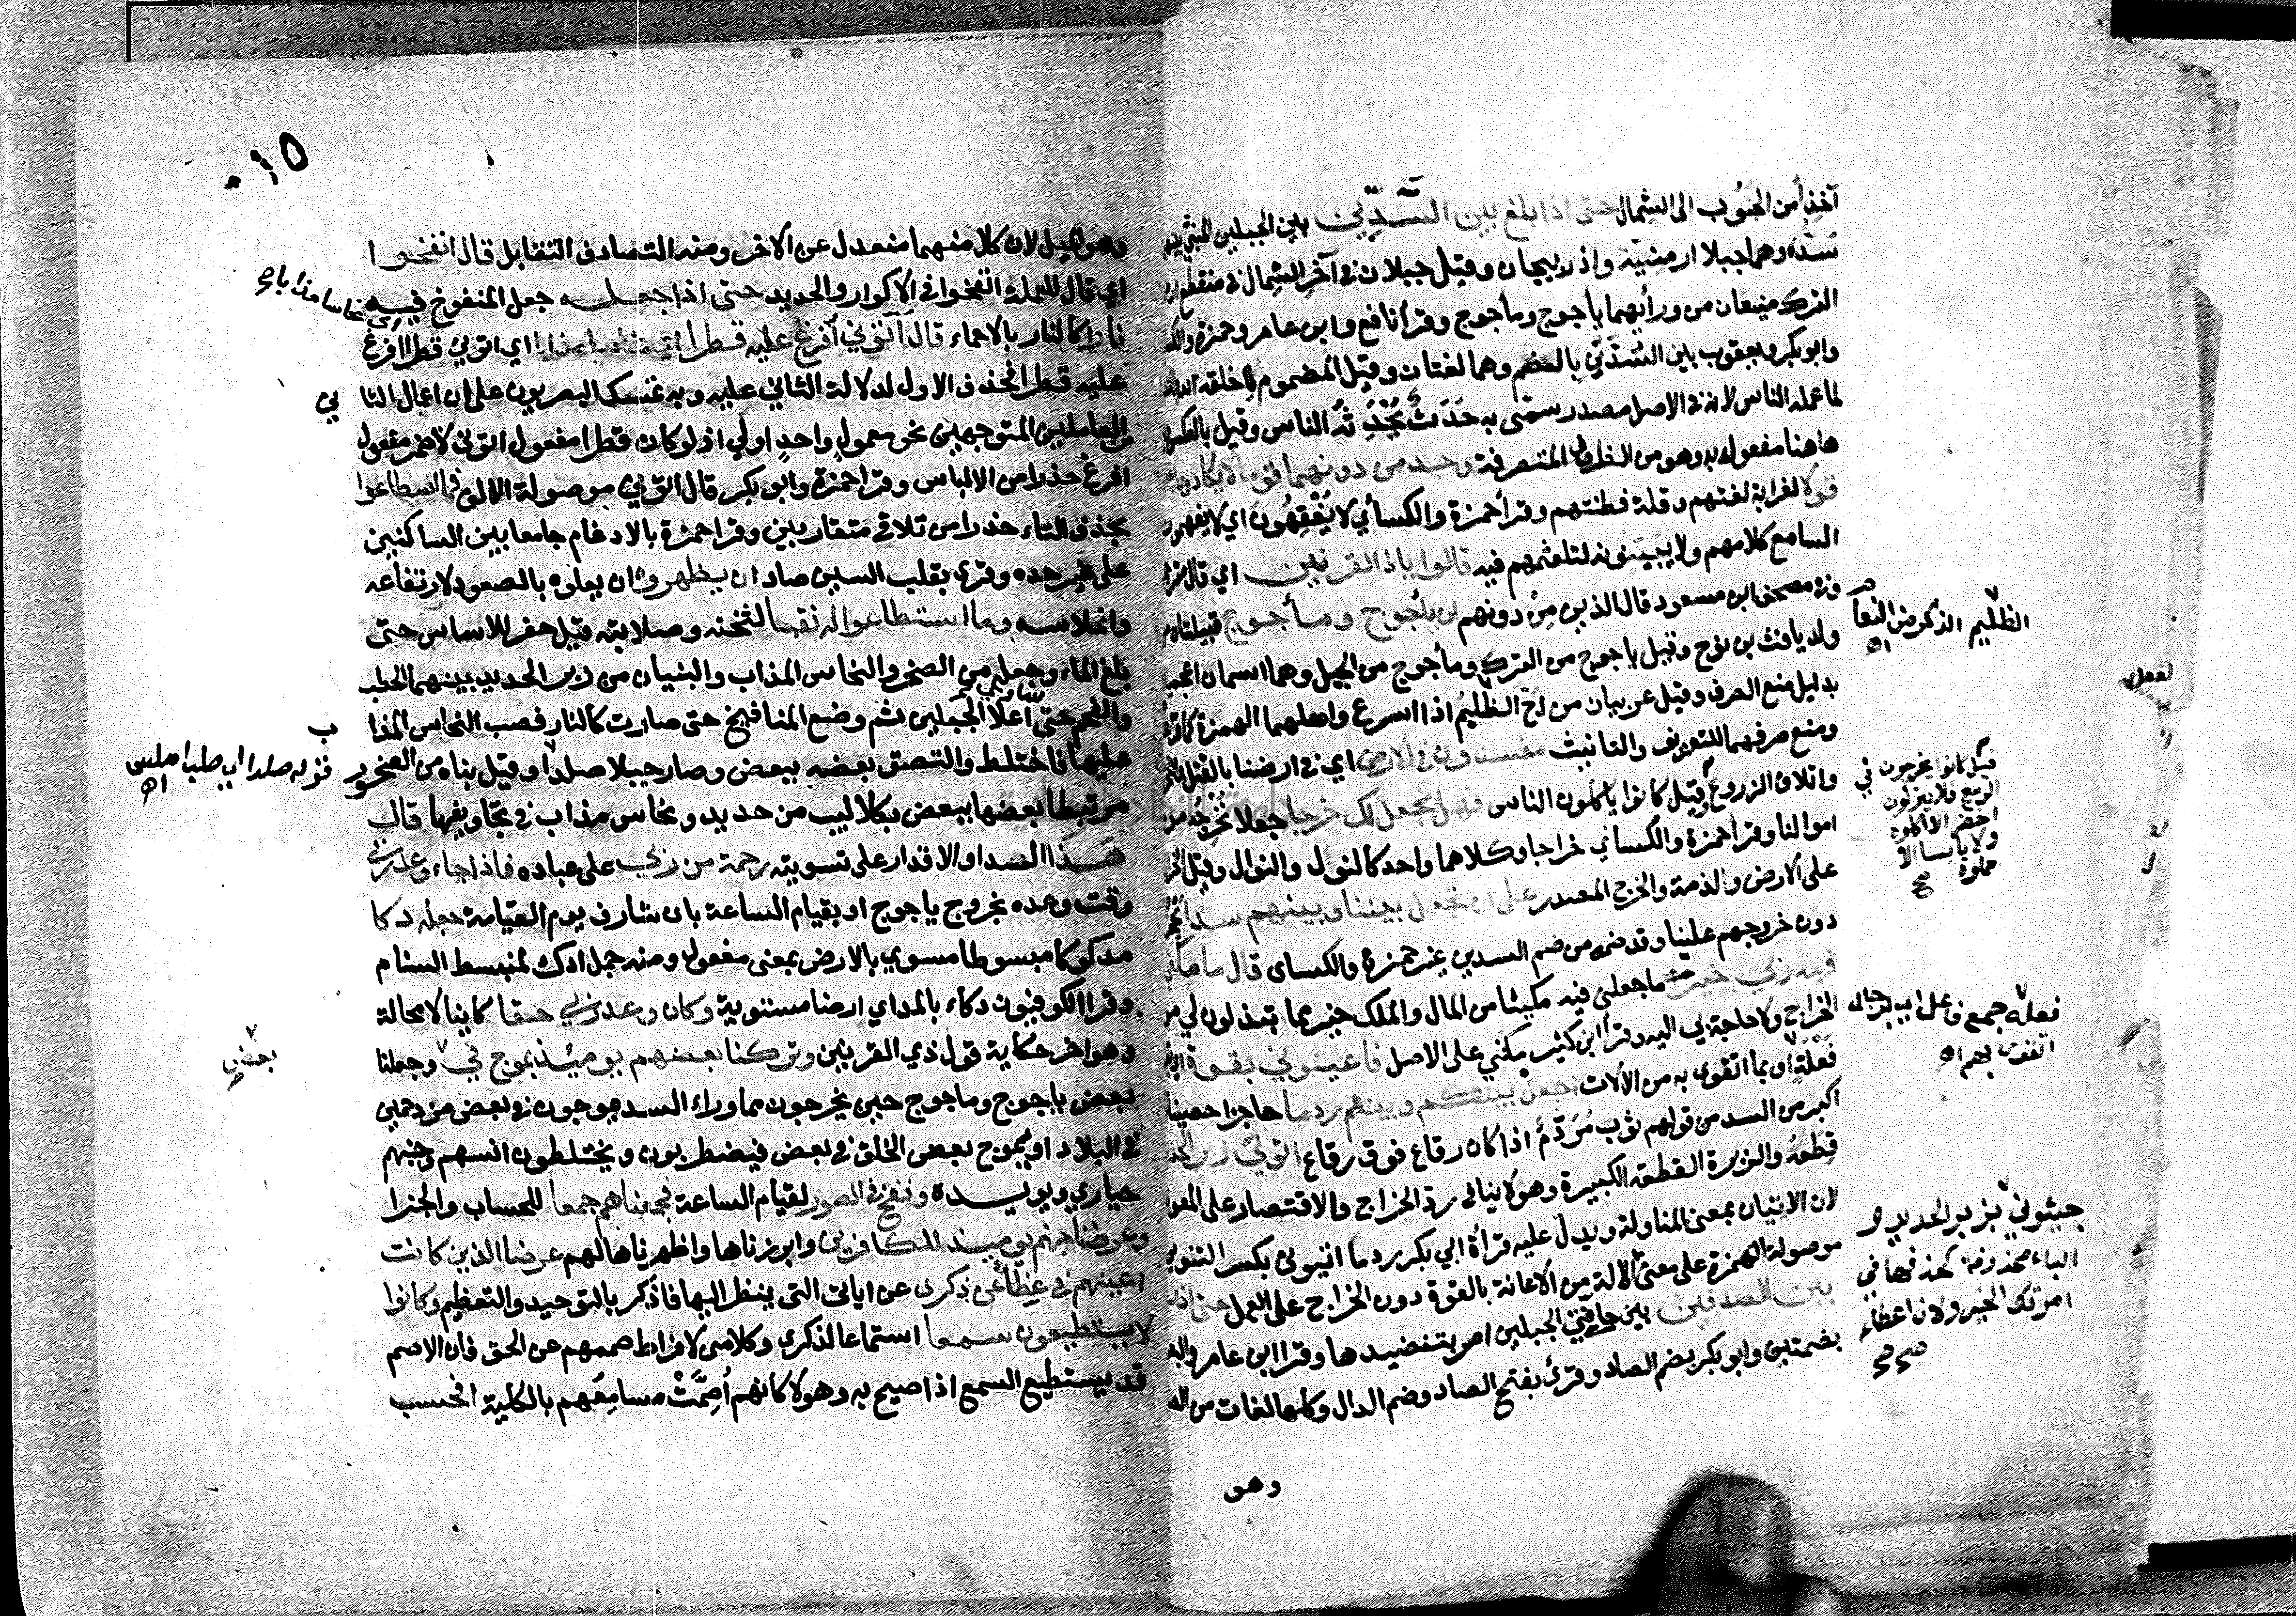 آخذاً من الجَنُوب الى الشِمال حتى اذا بلغ بين السَّدَّين بين الجبلين المبني بينهما
سَدّه وهما جبلا ارمنيّة واذربيجان وقيل جبلان في آخر الشمال في منقطع ارض
الترك منيعان من ورائهما يأجوج ومأجوج وقرأ نافع وابن عامر وحمزة والكسا
وابو بكر ويعقوب بين السُّدَّين بالضم وهما لغتان وقيل المضموم لما خلقه الله
لما عمله الناس لانه في الاصل مصدر سمّى به حَدَثٌ يُحْدِثُه الناس وقيل بالعكس
هاهنا مفعول به وهو من الظروف المتصرفة وجد من دونهما قوما لا يكادون
قولا لغرابة لغتهم وقلة فطنتهم وقرأ حمزة والكسائي لا يُفْقِهُون اي لا يفهمون
السامع كلامهم ولا يبيّنونه لتلعثمهم فيه قالوا يا ذا القرنين اي قال مترجم
وفي مصحف ابن مسعود قال الذين مِنْ دونهم ان يأجوج ومأجوج قبيلتان
ولد يافث بن نوح وقيل يأجوج من الترك ومأجوج من الجيل وهما اسمان اعجميا
بدليل منع الصرف وقيل عربيان من اجّ الظليمُ اذا اسرع واصلهما الهمزة كما قرأ
ومنع صرفهما للتعريف والتانيث مفسدون في الارض اي في ارضنا بالقتل والتخريب
واتلاف الزروع وقيل كانوا ياكلون الناس فهل نجعل لك خرجا جعلا نُخرِجُه من
اموالنا وقرأ حمزة والكسائي خراجا وكلاهما واحد كالنول والنوال وقيل الخراج
على الارض والذمة والخرج المصدر على ان تجعل بيننا وبينهم سدا يَحْجُز
دون خروجهم علينا وقد ضمه من ضم السدين غير حمزة والكساى قال ما مكنّي
فيه ربي خير ما جعلني فيه مكينا من المال والملك خير مما تبذلون لي من
الخراج ولا حاجة بي اليه وقرأ ابن كثير مكنني على الاصل فاعينوني بقوة
فَعَلةٍ او بما اتقوى به من الآلات اجعل بينكم وبينهم ردما حاجزا حصينا
اكبر من السد من قولهم ثوب مُرَدَّمٌ اذا كان رقاع فوق رقاع اتوني زبر الحديد
قِطَعَهُ والزبرة القطعة الكبيرة وهو لا ينافي ردّ الخراج والاقتصار على المعونة
لان الايتان بمعنى المناولة ويدل عليه قرأة ابي بكر ردما ائتوني بكسر التنوين
موصولة الهمزة على معنى لان الآلة من الاعانة بالقوة دون الخراج على العمل حتى اذا ساوى
بين الصدفين بين جانبي الجبلين امر بتنضيدها وقرأ ابن عامر والبصريان
بضمتين وابو بكر بضم الصاد وقرئ بفتح الصاد وضم الدال وكلها لغات من الصدف
وهو
الظليم الذكر من النعام
اه
قيل كانوا يخرجون في
الربيع فلا يتركون
اخضر الا اكلوه
ولا يابسا الا
حملوه
صح
فعلة جمع فاعل اي برجال
اتقوى بهم اه
جيئوني بزبر الحديد و
الباء محذوفة كحذفها في
امرتك الخير ولان اعطاء
صح صح
١٥٠
وهو الميل لان كلا منهما منعدل عن الاخر ومنه التصادف التقابل قال انفخوا
اي قال للعملة انفخوا في الاكوار والحديد حتى اذا جعله جعل المنفوخ فيه
نارا كالنار بالاحماء قال آتوني أفرغ عليه قطرا اي نحاسا مذابا اي اتوني قطرا افرغ
عليه قطرا فحذف الاول لدلالة الثاني عليه وبه تمسك البصريون على ان اعمال الثا ني
من العاملين المتوجهين نحو معمول واحدٍ اولى اذ لو كان قطرا مفعول اتوني لاضمر مفعول
افرغ حذرا من الالباس وقرأ حمزة وابو بكر قال اتوني موصولة الالف فما اسطاعوا
بحذف التاء حذرا من تلاقي متقاربين وقرأ حمزة بالادغام جامعا بين الساكنين
على غير حده وقرى بقلب السين صادا ان يظهروه ان يعلوه بالصعود لارتفاعه
وانملاسه وما استطاعوا له نقبا لثخنه وصلابته قيل حفر للاساس حتى
بلغ الماء وجعله من الصخر والنحاس المذاب والبنيان من زبر الحديد بينهما الحطب
والفحم حتى ساوى اعلا الجبلين ثم وضع المنافيخ حتى صارت كالنار فصب النحاس المذا ب
عليها فاختلط والتصق بعضه ببعض وصار جبلا صلدا وقيل بناه من الصخور
مرتبطا بعضها ببعض بكلاليب من حديد ونحاس مذاب في تجاويفها قال
هَذا السد او الاقدار على تسويته رحمة من ربي على عباده فاذا جاء وعد ربي
وقت وعده بخروج ياجوج او بقيام الساعة بان شارف يوم القيامة جعله دكا
مدكوكا مبسوطا مسوي بالارض بمعنى مفعول ومنه جمل ادك لمنبسط السنام
وقرأ الكوفيون دكاء بالمد اي ارضا مستوية وكان وعد ربي حقا كاينا لا محالة
وهو اخر حكاية قول ذي القرنين وتركنا بعضهم يومئذ يموج في وجعلنا
بعض ياجوج وماجوج حين يخرجون مما وراء السد يموجون في بعض مزدحمين
في البلاد او يموج بعض الخلق في بعض فيضطربون ويختلطون انسهم وجنهم
حيارى ويويده ونفخ في الصور لقيام الساعة فجمعناهم جمعا للحساب والجزا
وعرضنا جهنم يوميذ للكافرين وابرزناها واظهرناها لهم عرضا الذين كانت
اعينهم في غطآ عن ذكرى عن اياتى التى ينظر اليها فاذكر بالتوحيد والتعظيم وكانوا
لا يستطيعون سمعا استماعا لذكرى وكلامى لافراط صممهم عن الحق فان الاصم
قد يستطيع السمع اذا صيح به وهولا كانهم اُصِمَّتْ مسامعُهم بالكلية افحسب
اي نحاسا مذابا صح
قوله صلدا اي صلبا املس
اه
بعض